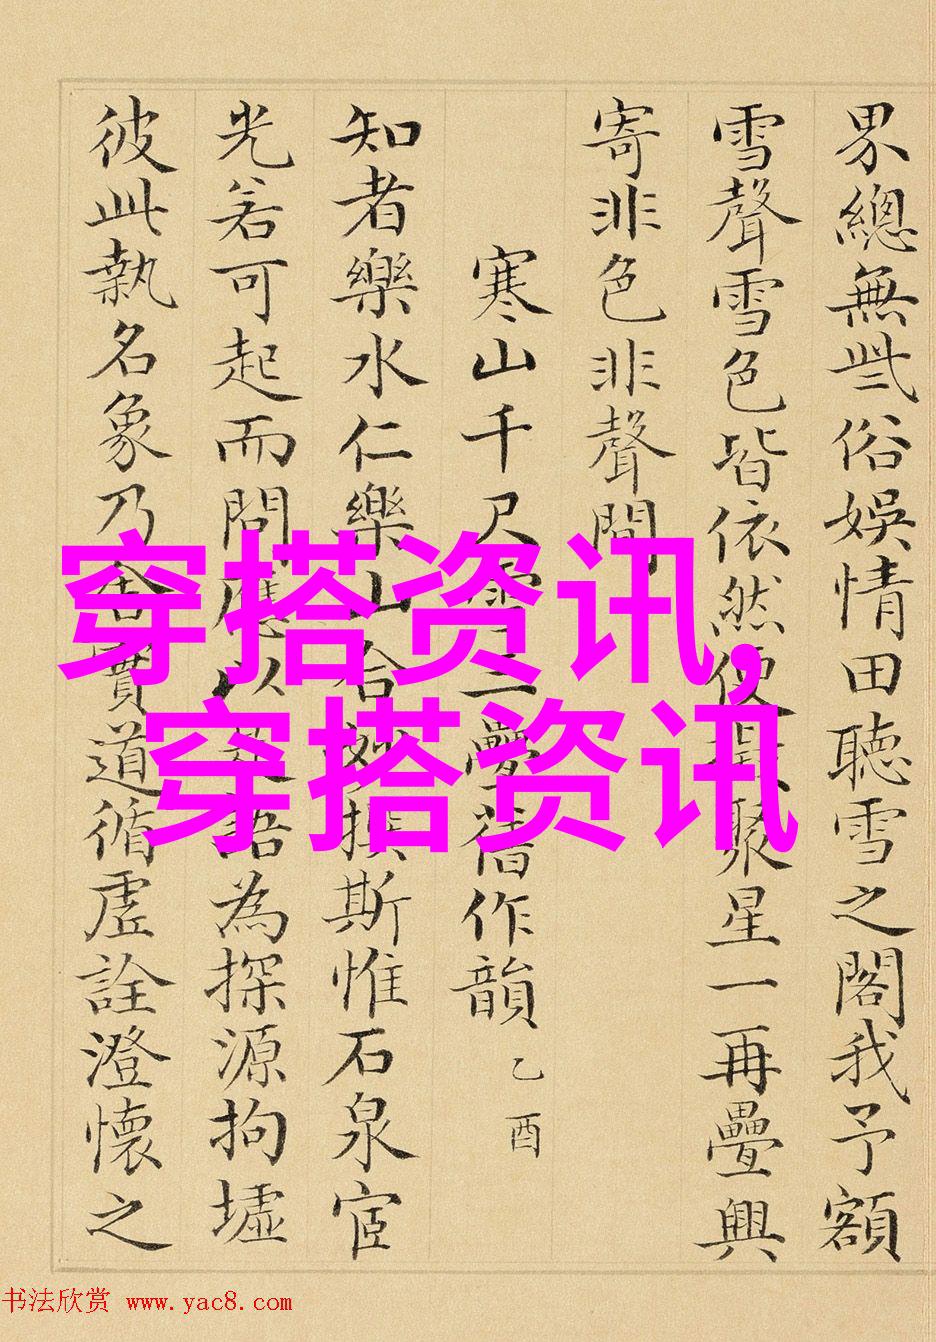 界總無些俗娛情田聽雪之閣我予額
雪聲雪色皆依然便聚星一再疊興
寄非色非聲間
寒山千尺雪三疊舊作韻 乙酉
知者樂水仁樂山合撰斯惟石泉宦
光若可起而問應以語為探源拘墟
彼此執名象乃舍實道循虛詮澄懷之
穿搭资讯,
穿搭资讯
书法欣赏 www.yac8.com